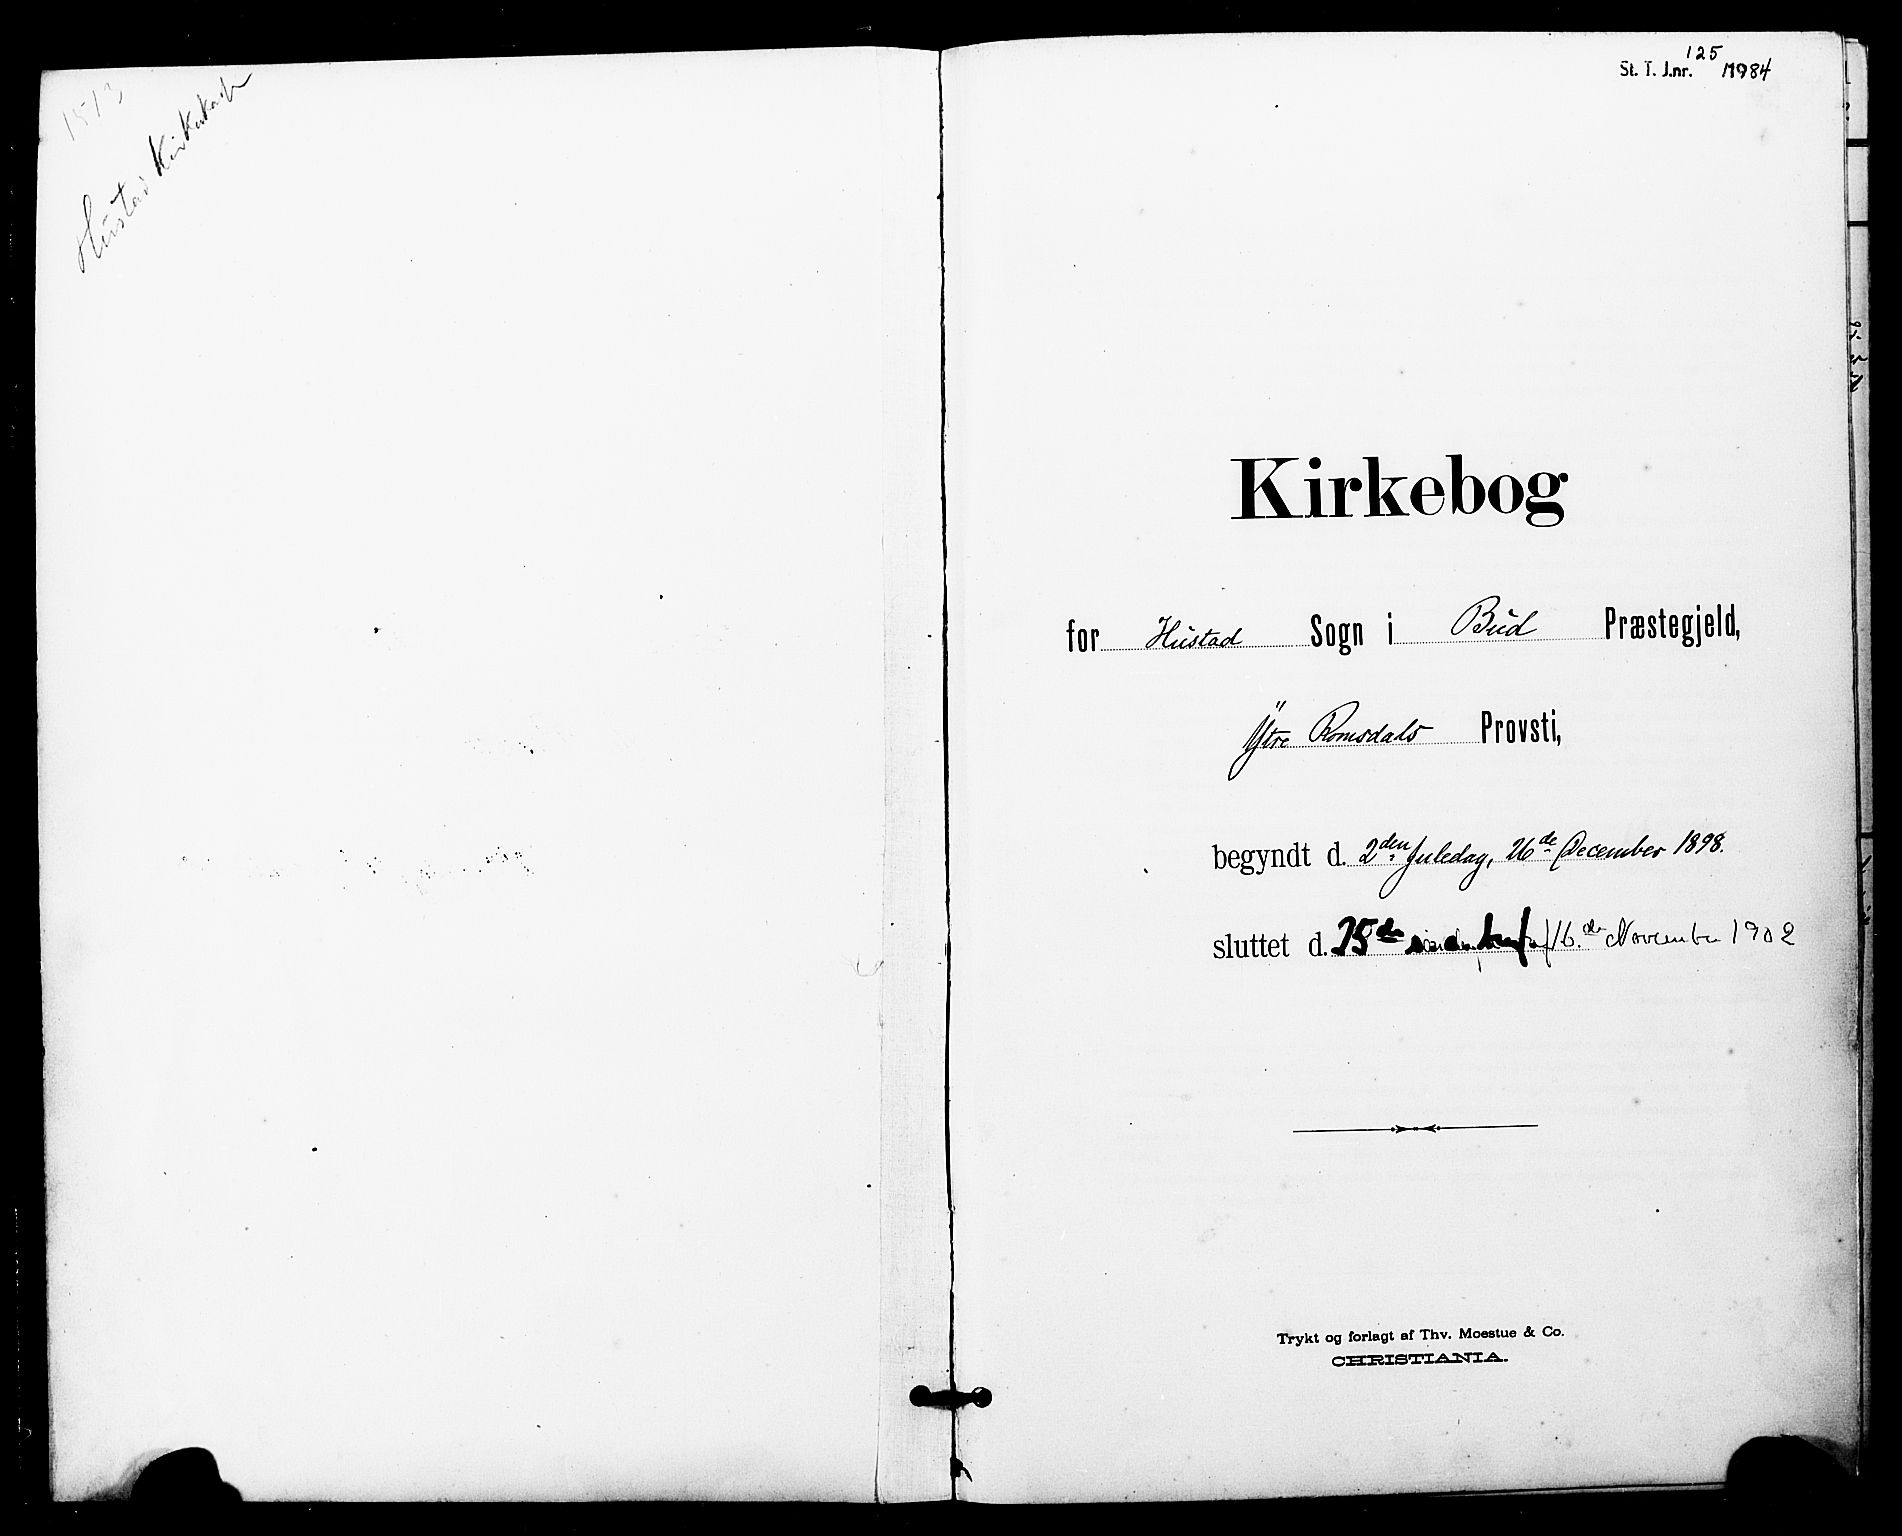 1513
Hustad Kirkebog
125
St. T. J.nr. 1984
Kirkebog
for Hustad Sogn i Bud Præstegjeld,
Ytre Romsdals Provsti,
begyndt d. 2den Juledag, 26de December 1898.
sluttet d. 25de 16.de November 1902
Trykt og forlagt af Thv. Moestue & Co.
CHRISTIANIA.